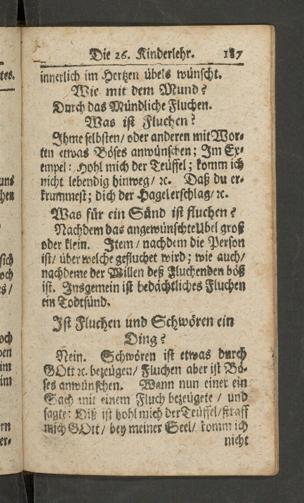 Die 26. Kinderlehr. 187
innerlich im Hertzen übels wünscht.
Wie mit dem Mund?
Durch das Mündliche Fluchen.
Was ist Fluchen?
Ihme selbsten / oder anderen mit Wor-
ten etwas Böses anwünschen; Im Ex-
empel: Hohl mich der Teüffel; komm ich
nicht lebendig hinweg / ꝛc. Daß du er-
krummest; dich der Hagel erschlag / ꝛc.
Was für ein Sünd ist fluchen?
Nachdem das angewünschte Ubel groß
oder klein. Item / nachdem die Person
ist / über welche geflucht wird; wie auch /
nachdeme der Willen deß Fluchenden böß
ist. Insgemein ist bedächtliches Fluchen
ein Todtsünd.
Ist Fluchen und Schwören ein
Ding?
Nein. Schwören ist etwas durch
GOtt ꝛc. bezeugen / Fluchen aber ist Bö-
ses anwünschen. Wann nun einer ein
Sach mit einem Fluch bezeügete / und
sagte: Diß ist hohl mich der Teüffel / straff
mich GOtt / bey meiner Seel / komm ich
nicht
tes.
uns
hen
sich
och
es /
och
oen
im
im
rn
er-